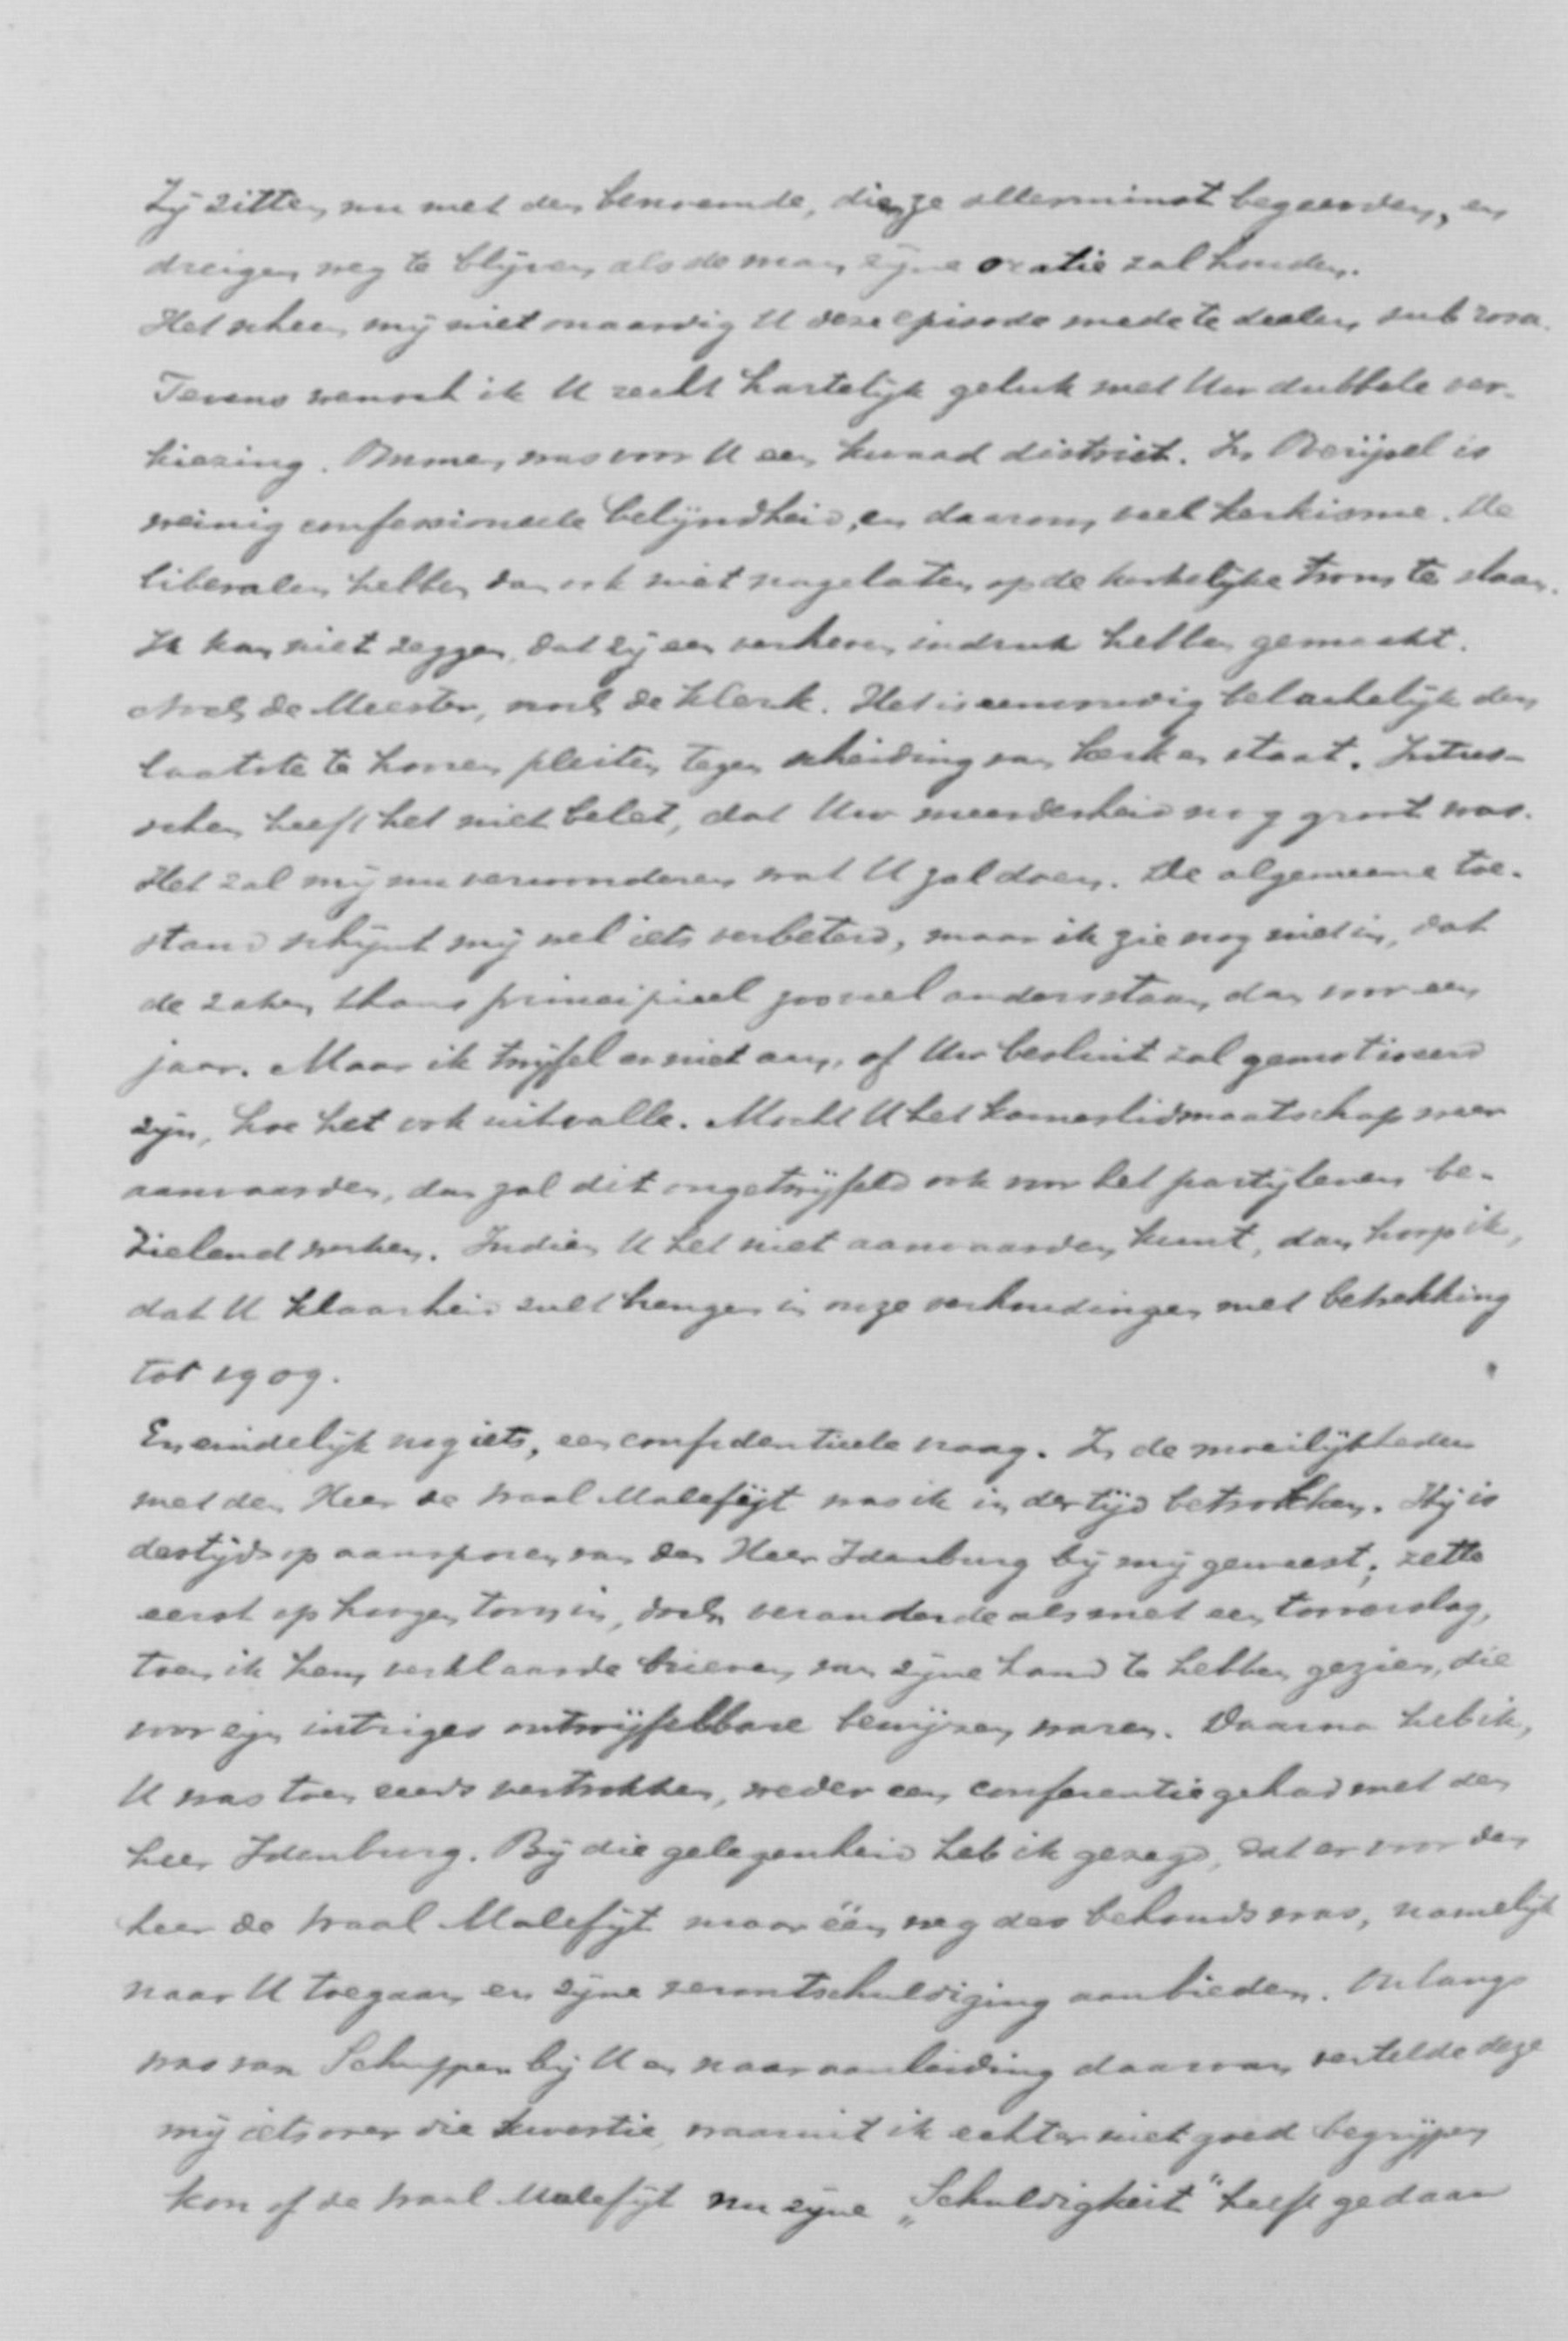 Zij zitten nu met den benoemde, dien ze allerminst begeerden, en
dreigen weg te blijven als de man zijne oratie zal houden.
Het scheen mij niet onaardig U deze episode mede te deelen, sub rosa.
Tevens wensch ik U recht hartelijk geluk met Uw dubbele ver-
kiezing. Ommen was voor U een kwaad district. In Overijsel is
weinig confessioneele belijndheid, en daarom veel kerkisme. De
liberalen hebben dan ook niet nagelaten op de kerkelijke trom te slaan.
Ik kan niet zeggen, dat zij een verheven indruk hebben gemaakt.
Noch de Meester, noch de Klerk. Het is eenvoudig belachelijk den
laatste te hooren pleiten tegen scheiding van kerk en staat. Intus-
schen heeft het niet belet, dat Uw meerderheid nog groot was.
Het zal mij nu verwonderen wat U zal doen. De algemeene toe-
stand schijnt mij wel iets verbeterd, maar ik zie nog niet in, dat
de zaken thans principieel zooveel anders staan, dan voor een
jaar. Maar ik twijfel er niet aan, of Uw besluit zal gemotiveerd
zijn, hoe het ook uitvalle. Mocht U het kamerlidmaatschap weer
aanvaarden, dan zal dit ongetwijfeld ook voor het partijleven be-
zielend werken. Indien U het niet aanvaarden kunt, dan hoop ik,
dat U klaarheid zult brengen in onze verhoudingen met betrekking
tot 1909.
En eindelijk nog iets, een confidentieele vraag. In de moeilijkheden
met den Heer de Waal Malefijt was ik in der tijd betrokken. Hij is
destijds op aansporen van den Heer Idenburg bij mij geweest; zette
eerst op hoogen toon in, doch veranderde als met een tooverslag,
toen ik hem verklaarde brieven van zijne hand te hebben gezien, die
voor zijn intriges ontwijfelbare bewijzen waren. Daarna heb ik,
U was toen reeds vertrokken, weder een conferentie gehad met den
heer Idenburg. Bij die gelegenheid heb ik gezegd, dat er voor den
heer de Waal Malefijt maar één weg des behouds was, namelijk
naar U toegaan en zijne verontschuldiging aanbieden. Onlangs
was van Schuppen bij U en naar aanleiding daarvan vertelde deze
mij iets over die kwestie, waaruit ik echter niet goed begrijpen
kon of de Waal Malefijt nu zijne „Schuldigkeit" heeft gedaan